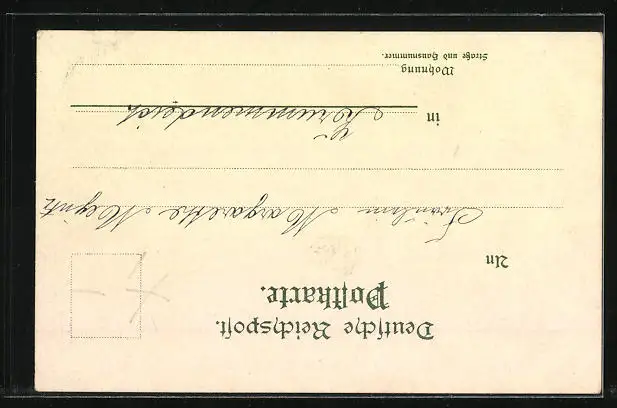 Deutsche Reichspost.
Postkarte.
An
Fräulein Margarethe
in Krummendeich
Wohnung
Straße und Hausnummer.